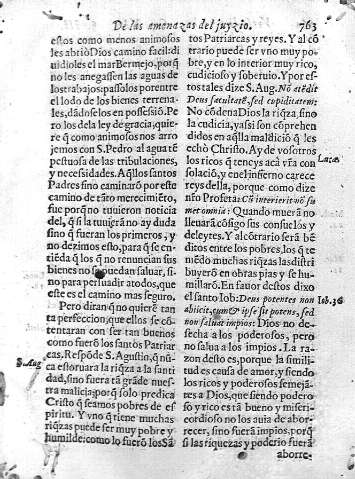 De las amenazas del juyzio. 763
estos como menos animosos
les abrió Dios camino facil: di
uidioles el mar Bermejo, porq̃
no les anegassen las aguas de
los trabajos: passolos por entre
el lodo de los bienes terrena-
les, dãdoselos en possessiõ. Pe
ro los de la ley de gracia, quie-
re q̃ como animosos nos arro
jemos con S. Pedro al agua tẽ
pestuosa de las tribulaciones,
y necessidades. Aq̃llos santos
Padres sino caminarõ por este
camino de tãto merecimiẽto,
fue porq̃ no tuuieron noticia
del, q̃ si la tuuierã no ay duda
sino q̃ fueran los primeros, y
no dezimos esto, para q̃ se en-
tiẽda q̃ los q̃ no renuncian sus
bienes no se puedan saluar, si-
no para persuadir a todos, que
este es el camino mas seguro.
Pero diran q̃ no quierẽ tan
ta perfeccion, que ellos se cõ
tentaran con ser tan buenos
como fuerõ los santos Patriar
cas. Respõde S. Agustin, q̃ nũ
ca estoruara la riq̃za a la santi
dad, sino fuera tã grãde nues-
tra malicia; porq̃ solo predica
Cristo q̃ seamos pobres de es
piritu. Y vno q̃ tiene muchas
riq̃zas puede ser muy pobre y
humilde: como lo fuerõ los Sã
S. Aug
tos Patriarcas y reyes. Y al cõ
trario puede ser vno muy po-
bre, y en lo interior muy rico,
cudicioso y soberuio. Y por es-
tos tales dize S. Aug. Nõ atẽdit
Deus facultatẽ, sed cupiditatem:
No cõdena Dios la riq̃za, sino
la cudicia, y assi son cõprehen
didos en aq̃lla maldiciõ q̃ les
echò Christo. Ay de vosotros
los ricos q̃ teneys acà vr̃a con
solaciõ, y en el infierno carece
reys della, porque como dize
Profeta: Cũ interierit nõ su
met omnia: Quando muera no
lleuarà cõsigo sus consuelos y
deleytes. Y al cõtrario será bẽ
ditos entre los pobres, los q̃ te
niẽdo muchas riq̃zas las distri
buyerõ en obras pias y se hu-
millarõ. En fauor destos dixo
el santo Iob: Deus potentes non
abijcit, cum & ipse sit potens, sed
non saluat impios: Dios no de-
secha a los poderosos, pero
no salua a los impios. La ra-
zon desto es, porque la simili-
tud es causa de amor, y siendo
los ricos y poderosos semejã-
tes a Dios, que siendo podero
so y rico està bueno y miseri-
cordioso no los auia de abor-
recer, sino fueran impios, porq̃
si las riquezas y poderio fuerã
Iob. 36
aborre-